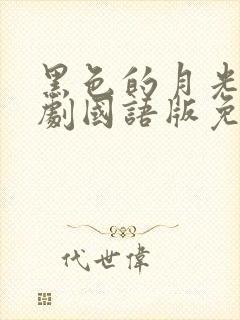 黑色的月光
劇國語版免
代世偉